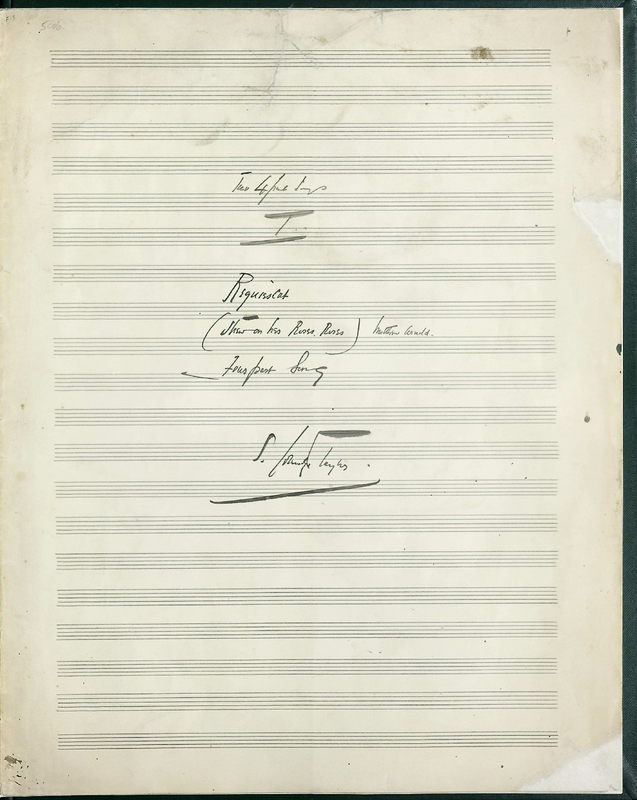 Two 4 part Songs
I.
Requiescat
(Strew on her Roses, Roses) Matthew Arnold.
Four part Song
S. Coleridge Taylor.